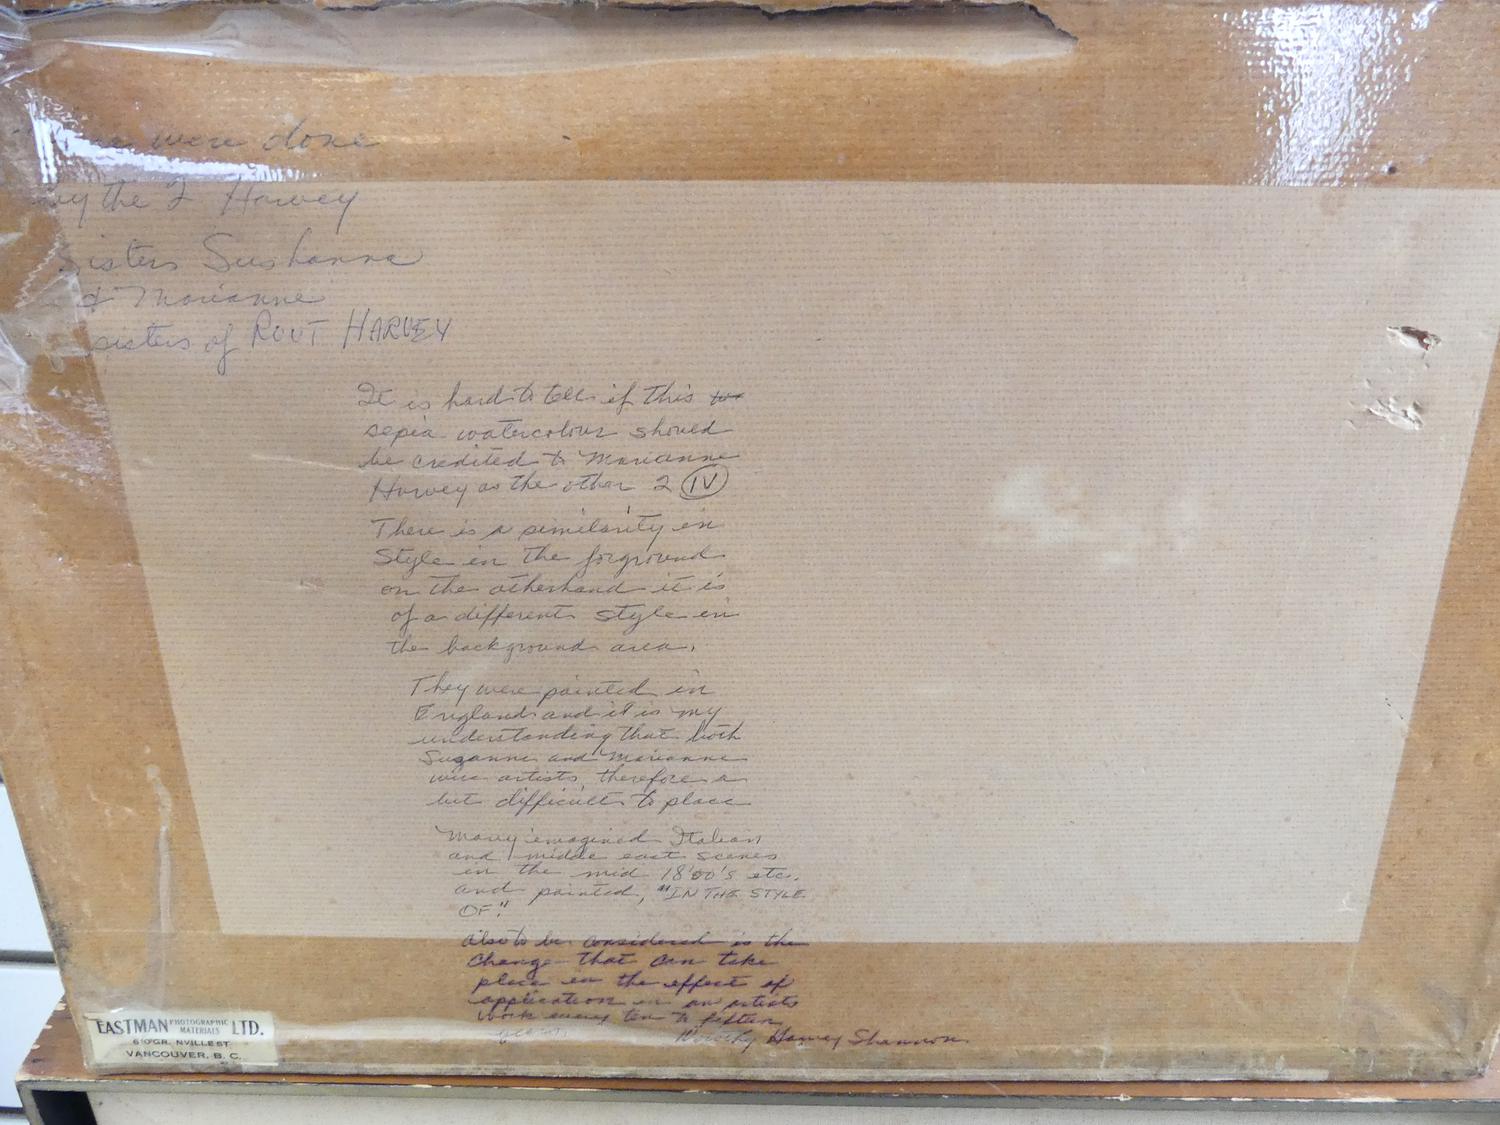 were done
by the 2 Harvey
Sisters Sushanna
& Marianne
sisters of ROUT HARVEY
It is hard to tell if this
sepia watercolour should
be credited to Marianne
Harvey as the other 2 IV
There is a similarity in
Style in the forground
on the otherhand it is
of a different style in
the background area.
They were painted in
England and it is my
understanding that both
Suzanne and Marianne
were artists, therefore a
bit difficult to place
Many imagined Italian
and middle east scenes
in the mid 1800's etc.
and painted, "IN THE STYLE
OF."
also to be considered is the
change that can take
place in the effect of
application in an artists
work every ten to fifteen
years.
Dorothy Harvey Shannon
EASTMAN PHOTOGRAPHIC MATERIALS LTD.
VANCOUVER, B. C.